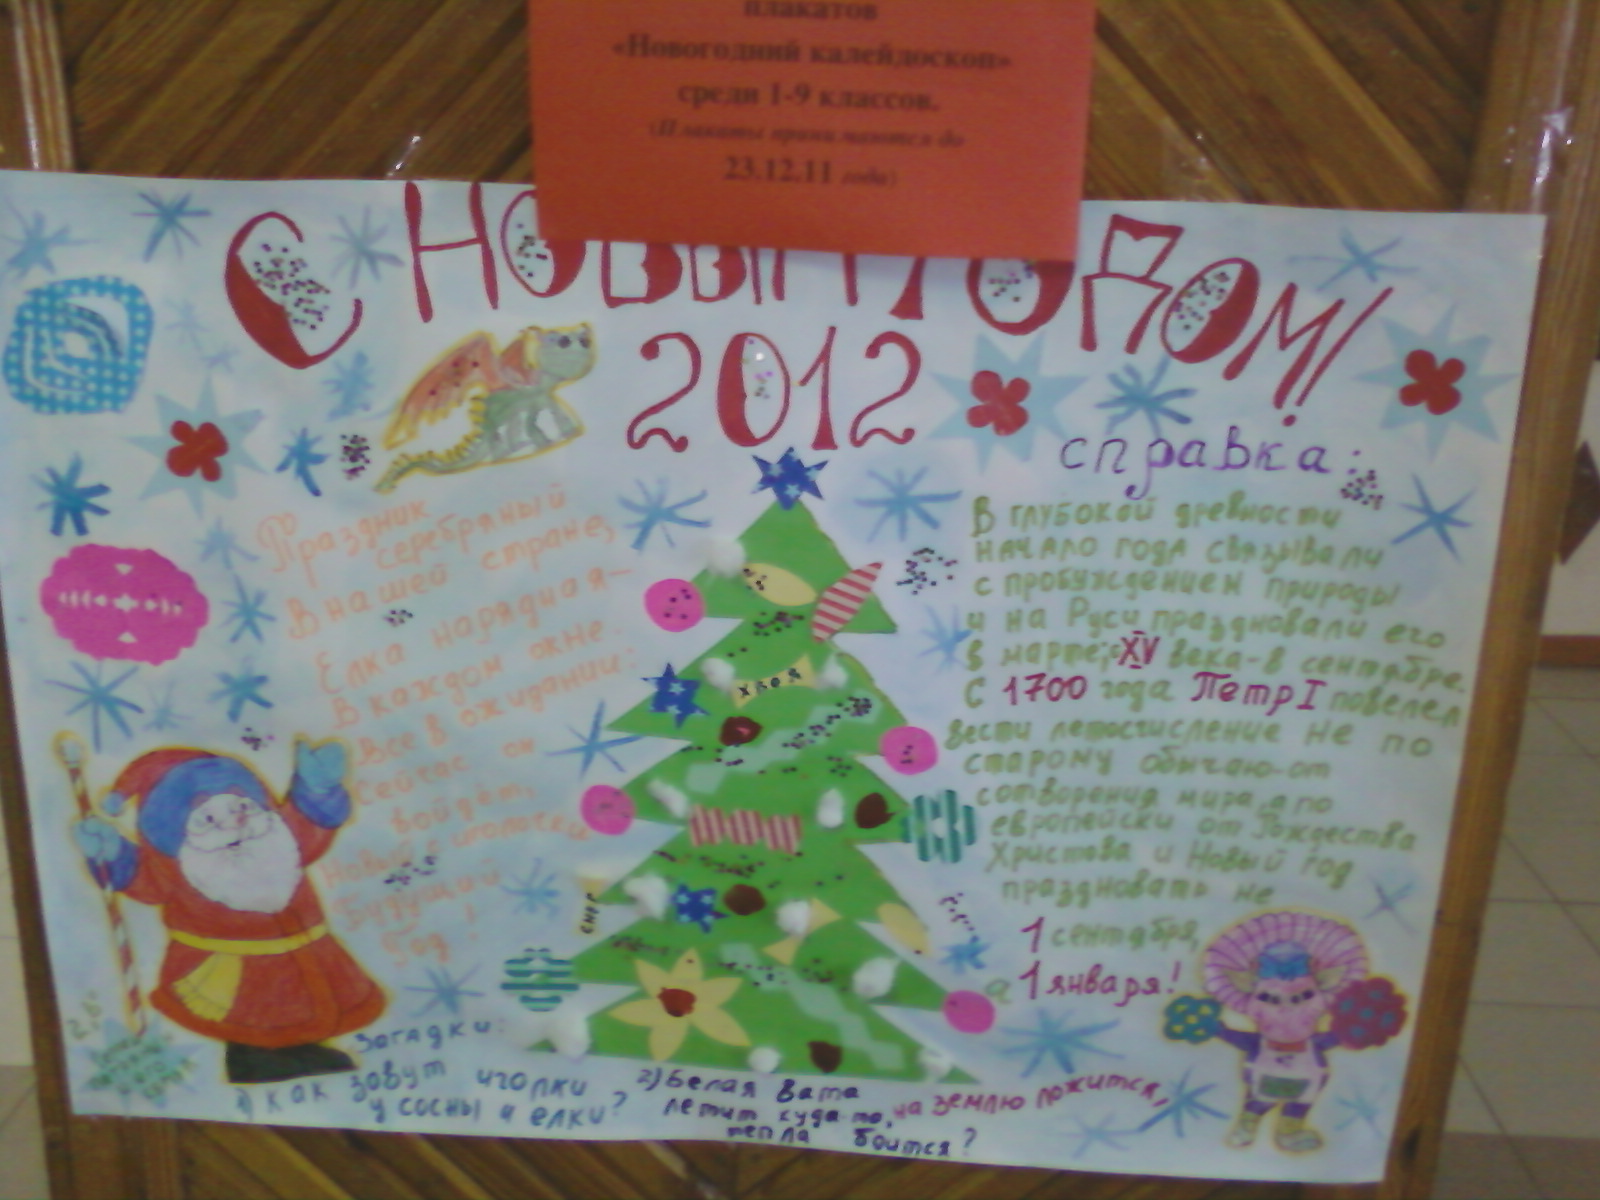 плакатов
«Новогодний калейдоскоп»
среди 1-9 классов.
(Плакаты принимаются до
23.12.11 года)
С НОВЫМ ГОДОМ!
2012
Праздник
серебряный
В нашей стране,
Елка нарядная-
В каждом окне.
Все в ожидании:
Сейчас он
войдёт,
Новый с иголочки
Будущий
Год!
справка:
В глубокой древности
начало года связывали
с пробуждением природы
и на Руси праздновали его
в марте, с XV века-в сентябре.
С 1700 года Петр I повелел
вести летосчисление не по
старому обычаю-от
сотворения мира, а по
европейски от Рождества
Христова и Новый год
праздновать не
1 сентября,
а 1 января!
хвоя
снег
2,б
Загадки:
1) как зовут иголки
у сосны и елки?
2) Белая вата
летит куда-то, на землю ложится,
тепла боится?